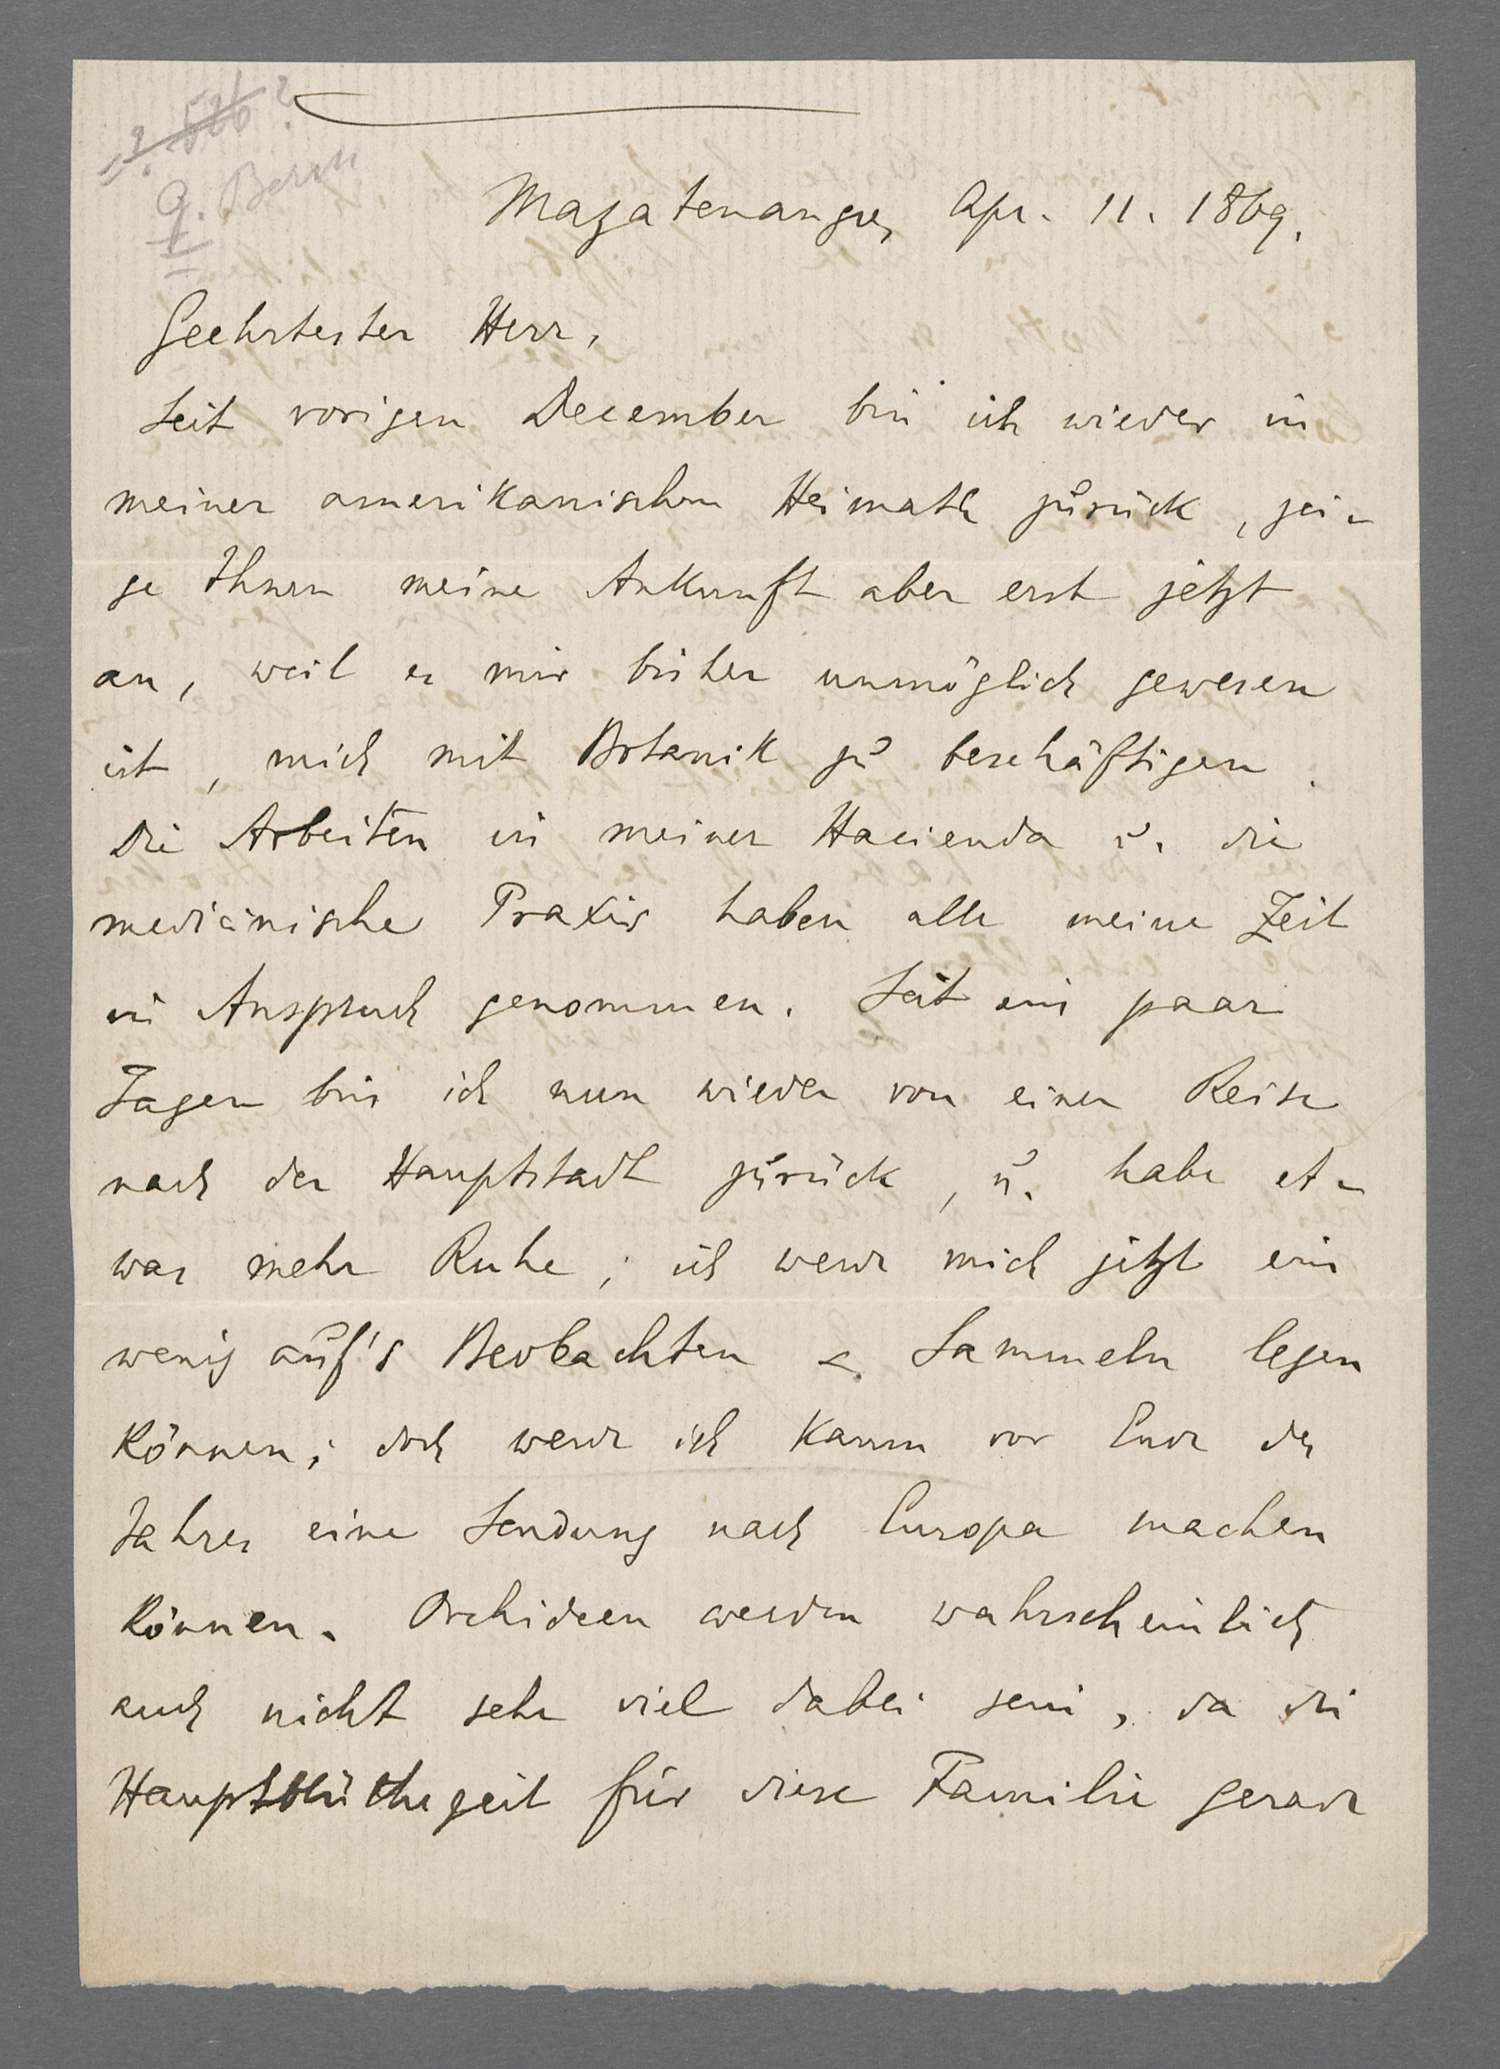 Mazatenango, Apr. 11. 1869.
Geehrtester Herr,
Seit vorigen December bin ich wieder in
meiner amerikanischen Heimath zurück, zei-
ge Ihnen meine Ankunft aber erst jetzt
an, weil es mir bisher unmöglich gewesen
ist, mich mit Botanik zu beschäftigen.
Die Arbeiten in meiner Hacienda u. die
medicinische Praxis haben alle meine Zeit
in Anspruch genommen. Seit ein paar
Tagen bin ich nun wieder von einer Reise
nach der Hauptstadt zurück, u. habe et-
was mehr Ruhe; ich werde mich jetzt ein
wenig auf's Beobachten & Sammeln legen
können; doch werde ich kaum vor Ende des
Jahres eine Sendung nach Europa machen
können. Orchideen werden wahrscheinlich
auch nicht sehr viel dabei sein, da die
Hauptblüthezeit für diese Familie gerade